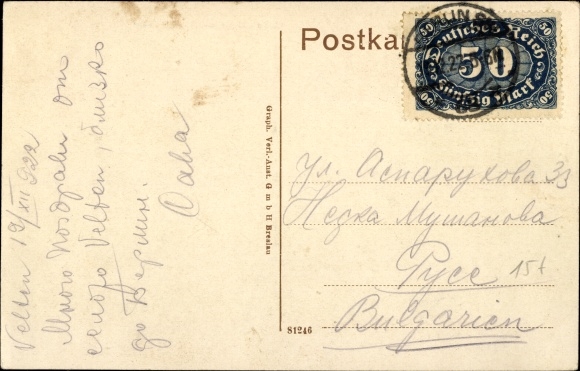 Postka
Deutsches Reich
50
50
50
fünfzig Mark
50
50
Velten 19/XII 922
Много поздрави от
селото Velten, близко
до Берлин.
Саха
Graph. Verl.-Anst. G m b H Breslau
81246
ул. Аспарухова 33
Недка Мушанова
Русе
15т
Bulgarien